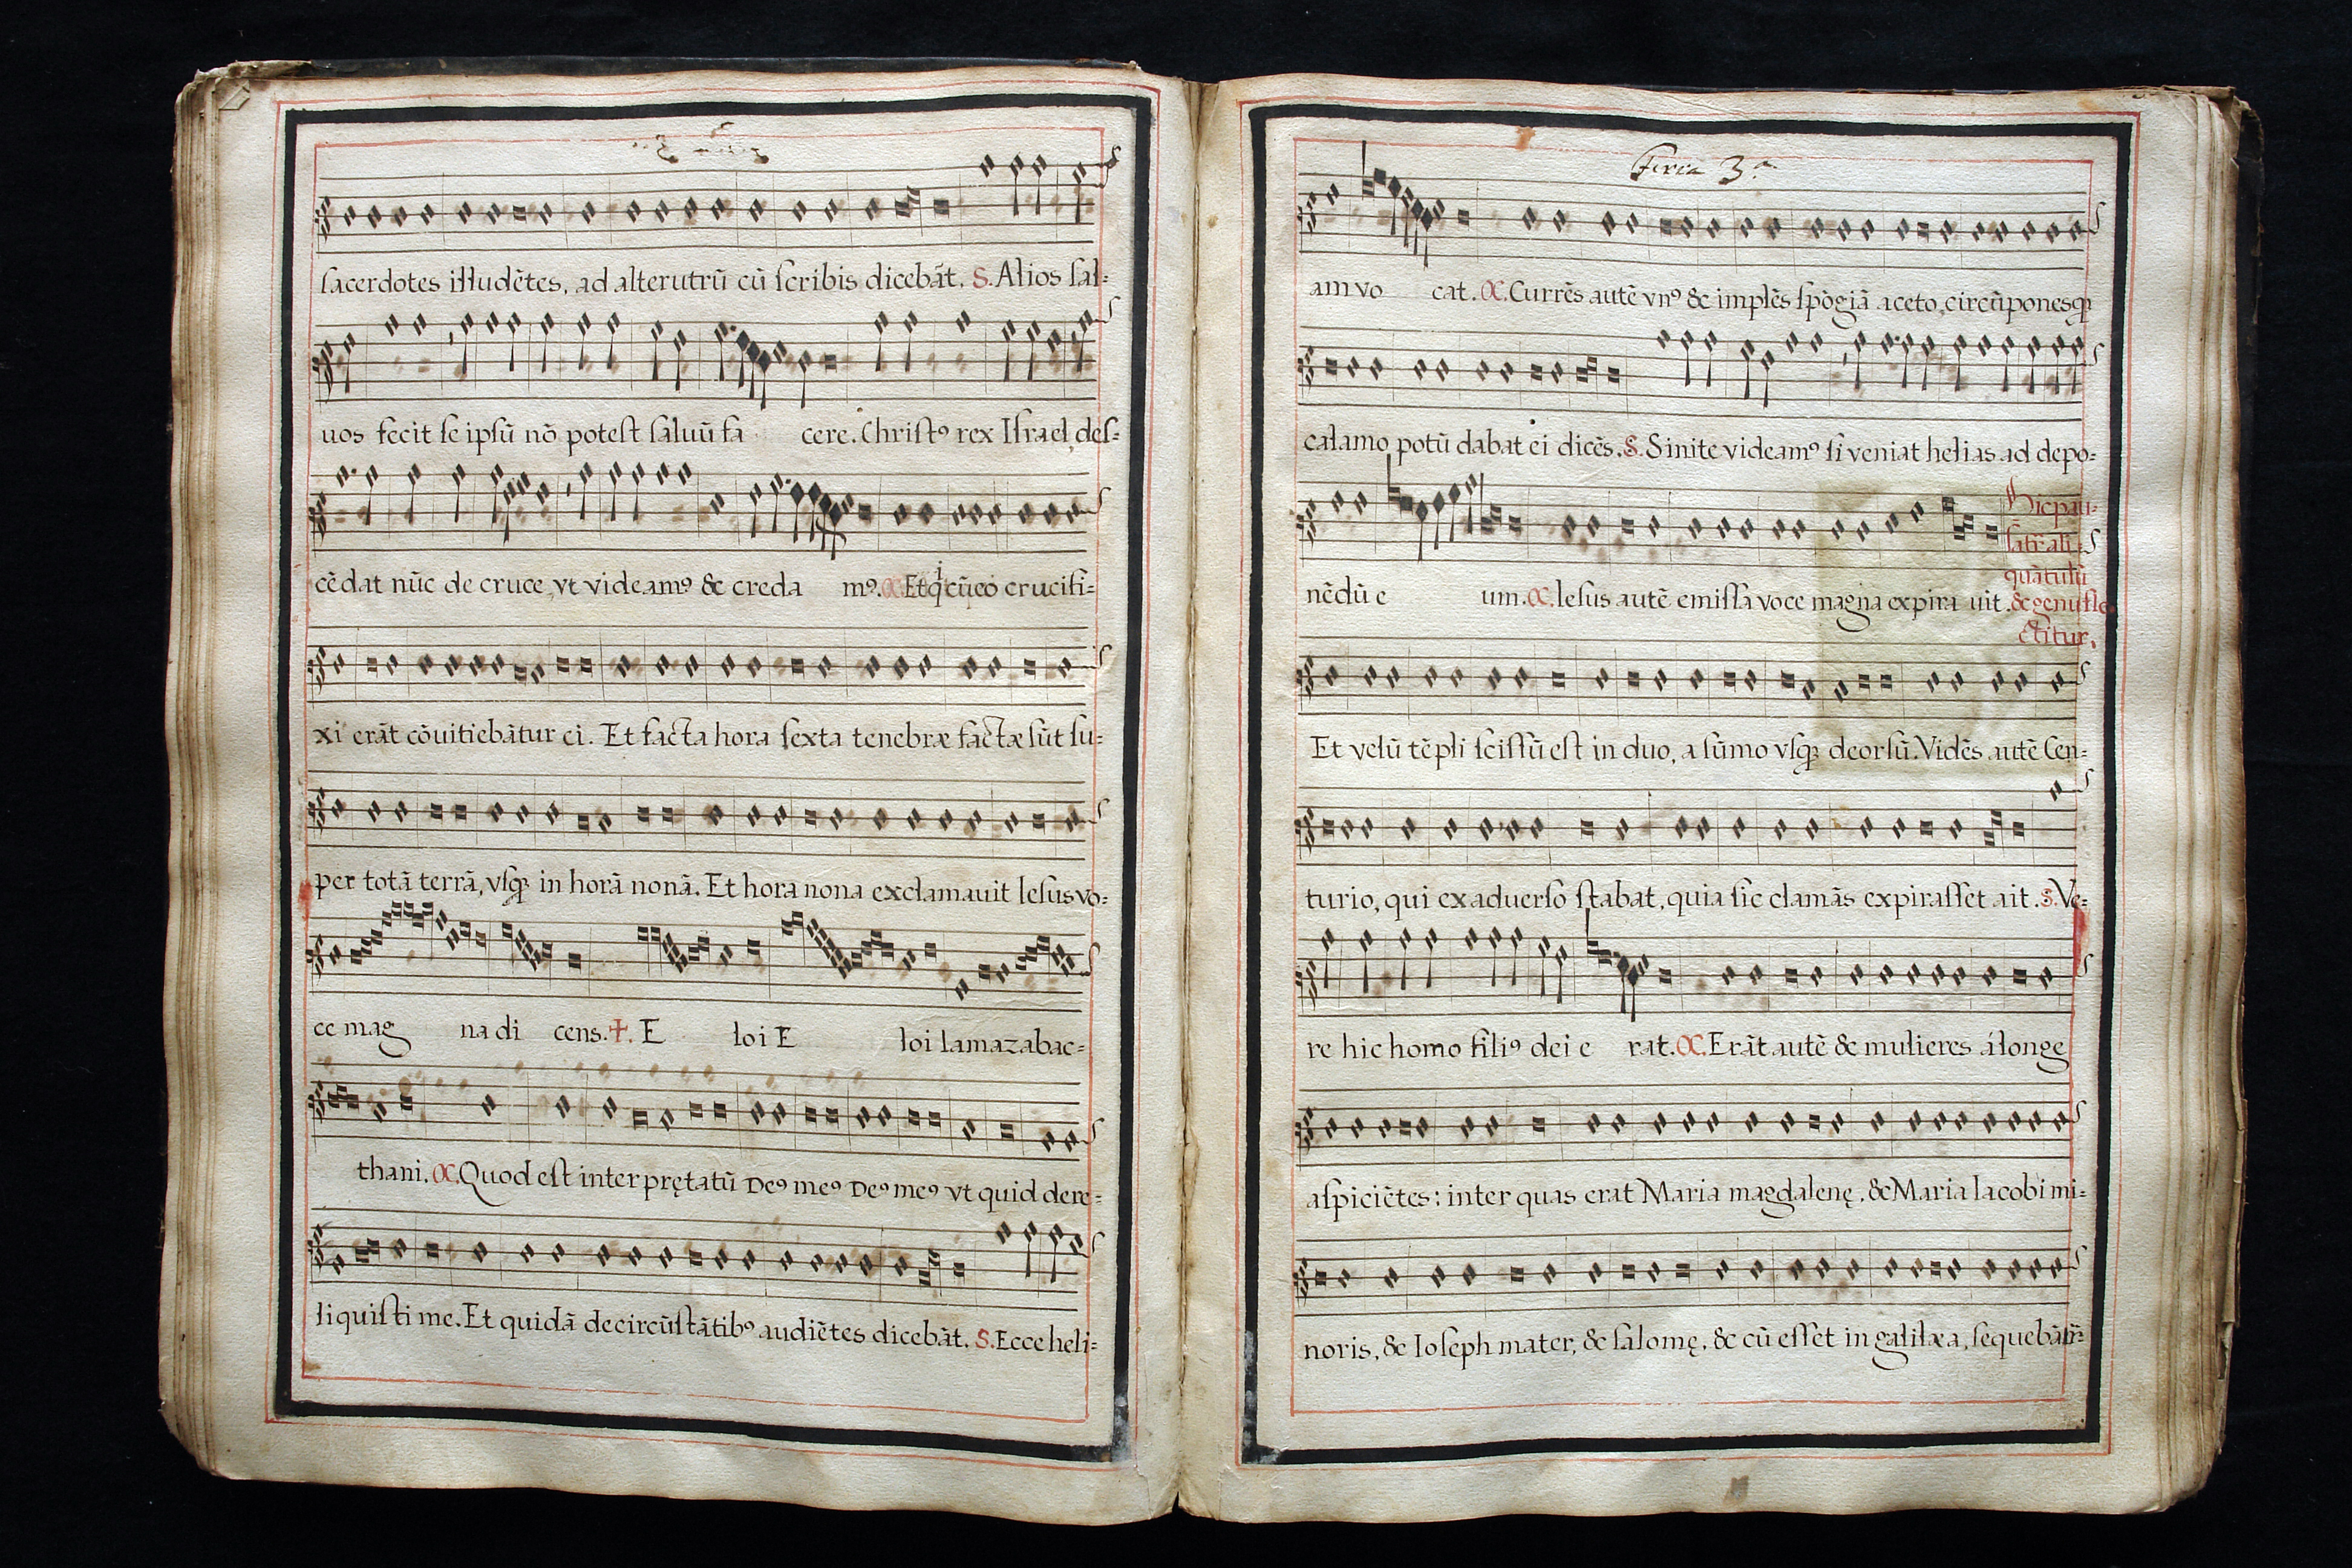 sacerdotes illudētes, ad alterutrū cū scribis dicebāt. S. Alios sal=
uos fecit se ipsū nō potest saluū fa cere. Christꝰ rex Israel, des=
cēdat nūc de cruce, vt videamꝰ & creda mꝰ. C. Et qi cū eo crucifi=
xi erāt cōuitiebātur ei. Et facta hora sexta tenebræ factæ sūt su=
per totā terrā, vsqꝫ in horā nonā. Et hora nona exclamauit Iesus vo=
ce mag na di cens. +. E loi E loi lamazabac=
thani. C. Quod est interprętatū Deꝰ meꝰ Deꝰ meꝰ vt quid dere=
liquisti me. Et quidā de circūstātibꝰ audiētes dicebāt. S. Ecce heli=
Feria 3.a
am vo cat. C. Currēs autē vnꝰ & implēs spōgiā aceto, circūponesqꝫ
calamo potū dabat ei dicēs. S. Sinite videamꝰ si veniat helias ad depo=
nēdū e um. C. Iesus autē emissa voce magna expira uit.
Hic pau=
satr̄ ali=
quātulū
& genufle
ctitur.
Et velū tēpli scissū est in duo, a sūmo vsqꝫ deorsū. Vidēs autē Cen=
turio, qui ex aduerso stabat, quia sic clamās expirasset ait. S. Ve=
re hic homo filiꝰ dei e rat. C. Erāt autē & mulieres á longe
aspiciētes: inter quas erat Maria magdalenę, & Maria Iacobi mi=
noris, & Ioseph mater, & salomę, & cū esset in galilæa, sequebātr̄=